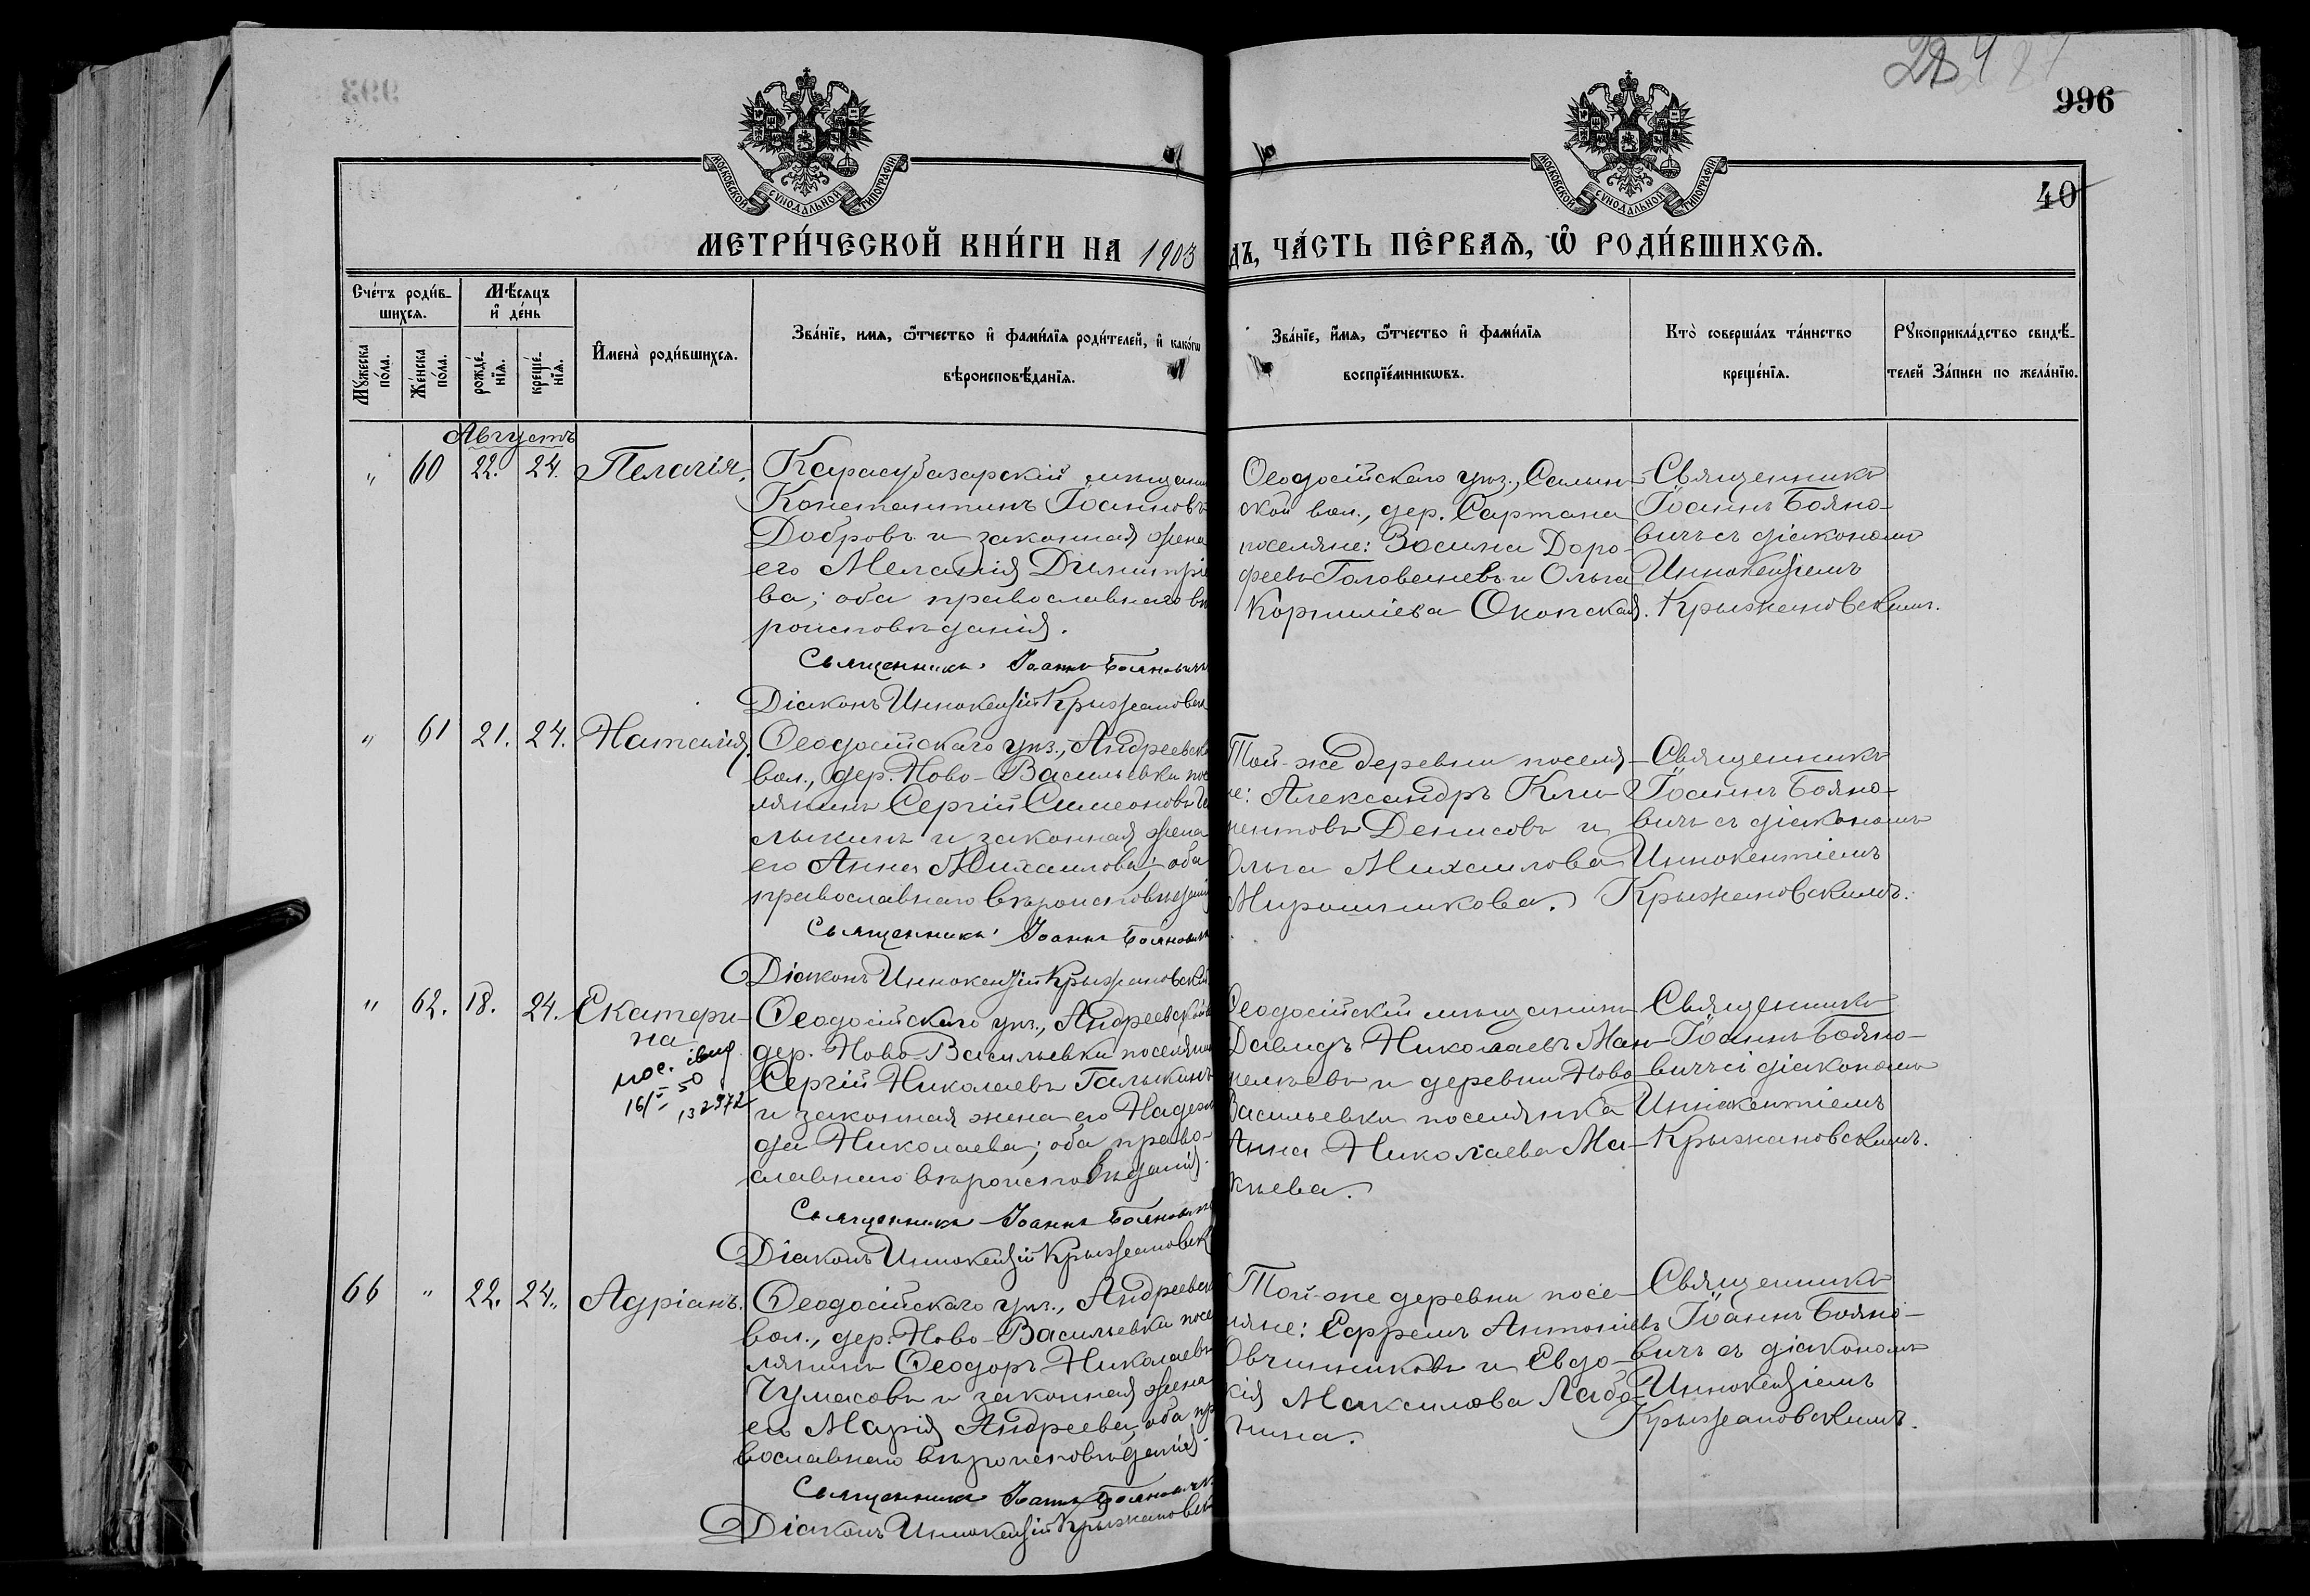 996
40
МОСКОВСКОЙ СѴНОДАЛЬНОЙ ТИПОГРАФІИ
МОСКОВСКОЙ СѴНОДАЛЬНОЙ ТИПОГРАФІИ
МЕТРИ́ЧЕСКОЙ КНИ́ГИ НА 1903
ДЪ, ЧА́СТЬ ПЕ́РВАѦ, Ѽ РОДИ́ВШИХСѦ.
Сче́тъ роди́в-
шихсѧ.
Мѣ́сѧцъ
и҆ де́нь
Мꙋ́жеска
по́ла.
Же́нска
по́ла.
рожде́-
нїѧ.
креще́-
нїѧ.
И҆мена̀ роди́вшихсѧ.
Зва́нїе, имѧ, ѻ҆́тчество и҆ фами́лїѧ роди́телей, и҆ како́гѡ
вѣроисповѣ́данїѧ.
Зва́нїе, и҆́мѧ, ѻ҆́тчество и҆ фами́лїѧ
воспрїе́мникѡвъ.
Кто̀ соверша́лъ та́инство
креще́нїѧ.
Рꙋкоприкла́дство свидѣ́-
телей За́писи по жела́нїю.
Августъ
" 60 22. 24. Пелагія.
Карасубазарскій мѣщанин
Константинъ Іоанновъ
Добровъ и законная жена
его Меланія Димитріе
ва; оба православнаго вѣ
роисповѣданія.
Священникъ Іоаннъ Бояновичъ
Діаконъ Иннокентій Крыжановск
Ѳеодосійскаго уѣз., Салын-
ской вол., дер. Сартана
поселяне: Зосима Доро-
феевъ Головешевъ и Ольга
Корниліева Окопская.
Священникъ
Іоаннъ Бояно-
вичъ съ діакономъ
Иннокентіемъ
Крыжановскимъ.
" 61 21. 24. Наталія.
Ѳеодосійскаго уѣз., Андреевск
вол., дер. Ново-Васильевки пос
лянинъ Сергій Симеоновъ
и законная жена
его Анна Михаилова; оба
православнаго вѣроисповѣдані
Священникъ Іоаннъ Бояновичъ
Діаконъ Иннокентій Крыжановскій
Той-же деревни поселя-
не: Александръ Кли-
ментовъ Денисовъ и
Ольга Михаилова
Мирошникова.
Священникъ
Іоаннъ Бояно-
вичъ съ діакономъ
Иннокентіемъ
Крыжановскимъ.
" 62. 18. 24. Екатери-
на
16/I 50
132972
Ѳеодосійскаго уѣз., Андреевской
дер. Ново-Васильевки поселянин
Сергій Николаевъ Галыкинъ
и законная жена его Надеж
да Николаева; оба право-
славнаго вѣроисповѣданія.
Священникъ Іоаннъ Бояновичъ
Діаконъ Иннокентій Крыжановск
Ѳеодосійскій мѣщанинъ
Давидъ Николаевъ Ман-
и деревни Ново
Васильевки поселянка
Анна Николаева Ма-
кѣева.
Священникъ
Іоаннъ Бояно-
вичъ съ діакономъ
Иннокентіемъ
Крыжановскимъ.
66 " 22. 24. Адріанъ.
Ѳеодосійскаго уѣз., Андреевск
вол., дер. Ново-Васильевки посе
лянинъ Ѳеодоръ Николаевъ
Чумасовъ и законная жена
его Марія Андреева; оба пр
вославнаго вѣроисповѣданія.
Священникъ Іоаннъ Бояновичъ
Діаконъ Иннокентій Крыжановск
Той-же деревни посе-
ляне: Ефремъ Антоніевъ
Овчинниковъ и Евдо-
кія Максимова Лабо-
Священникъ
Іоаннъ Бояно-
вичъ съ діакономъ
Иннокентіемъ
Крыжановскимъ.